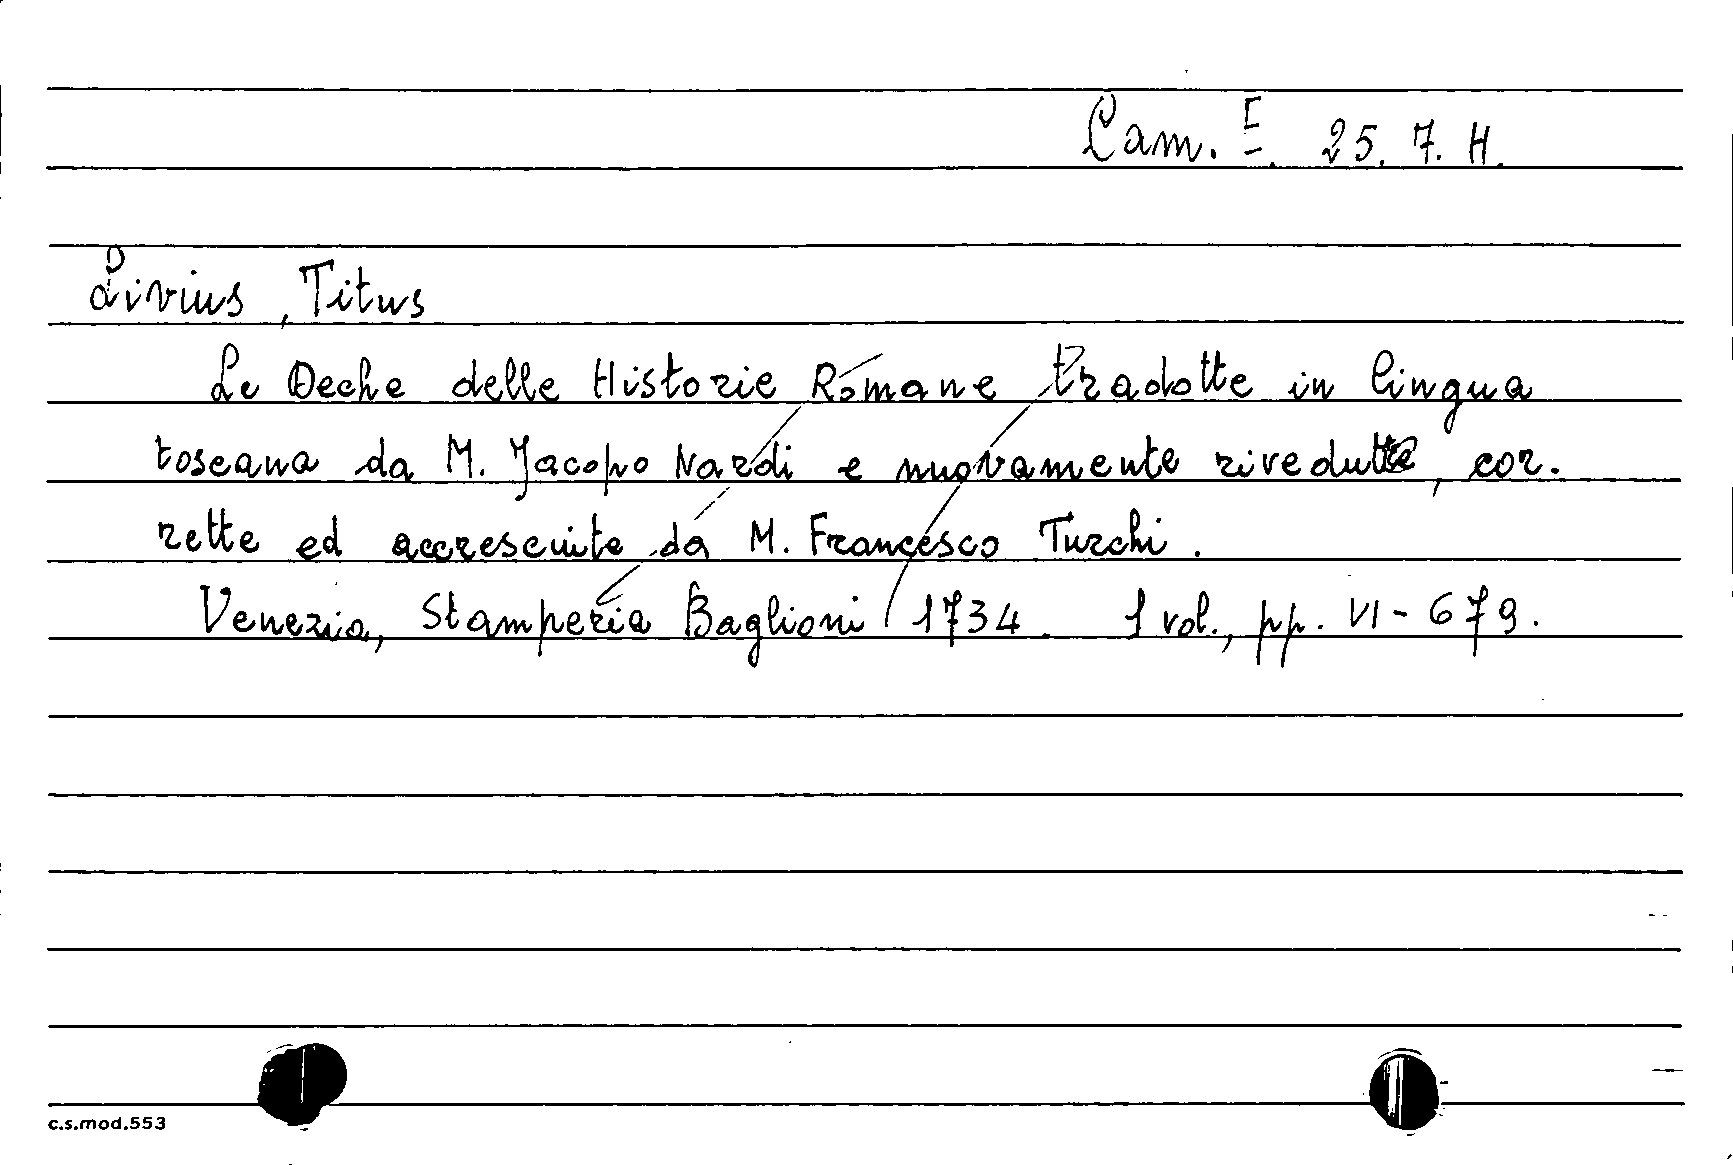 Cam. I. 25. 7. H.
Livius, Titus
Le Deche delle Historie Romane tradotte in lingua
toscana da M. Jacopo Nardi e nuovamente rivedutte, cor.
rette ed accresciute da M. Francesco Turchi.
Venezia, Stamperia Baglioni 1734. 1 vol., pp. VI - 679.
c.s.mod.553